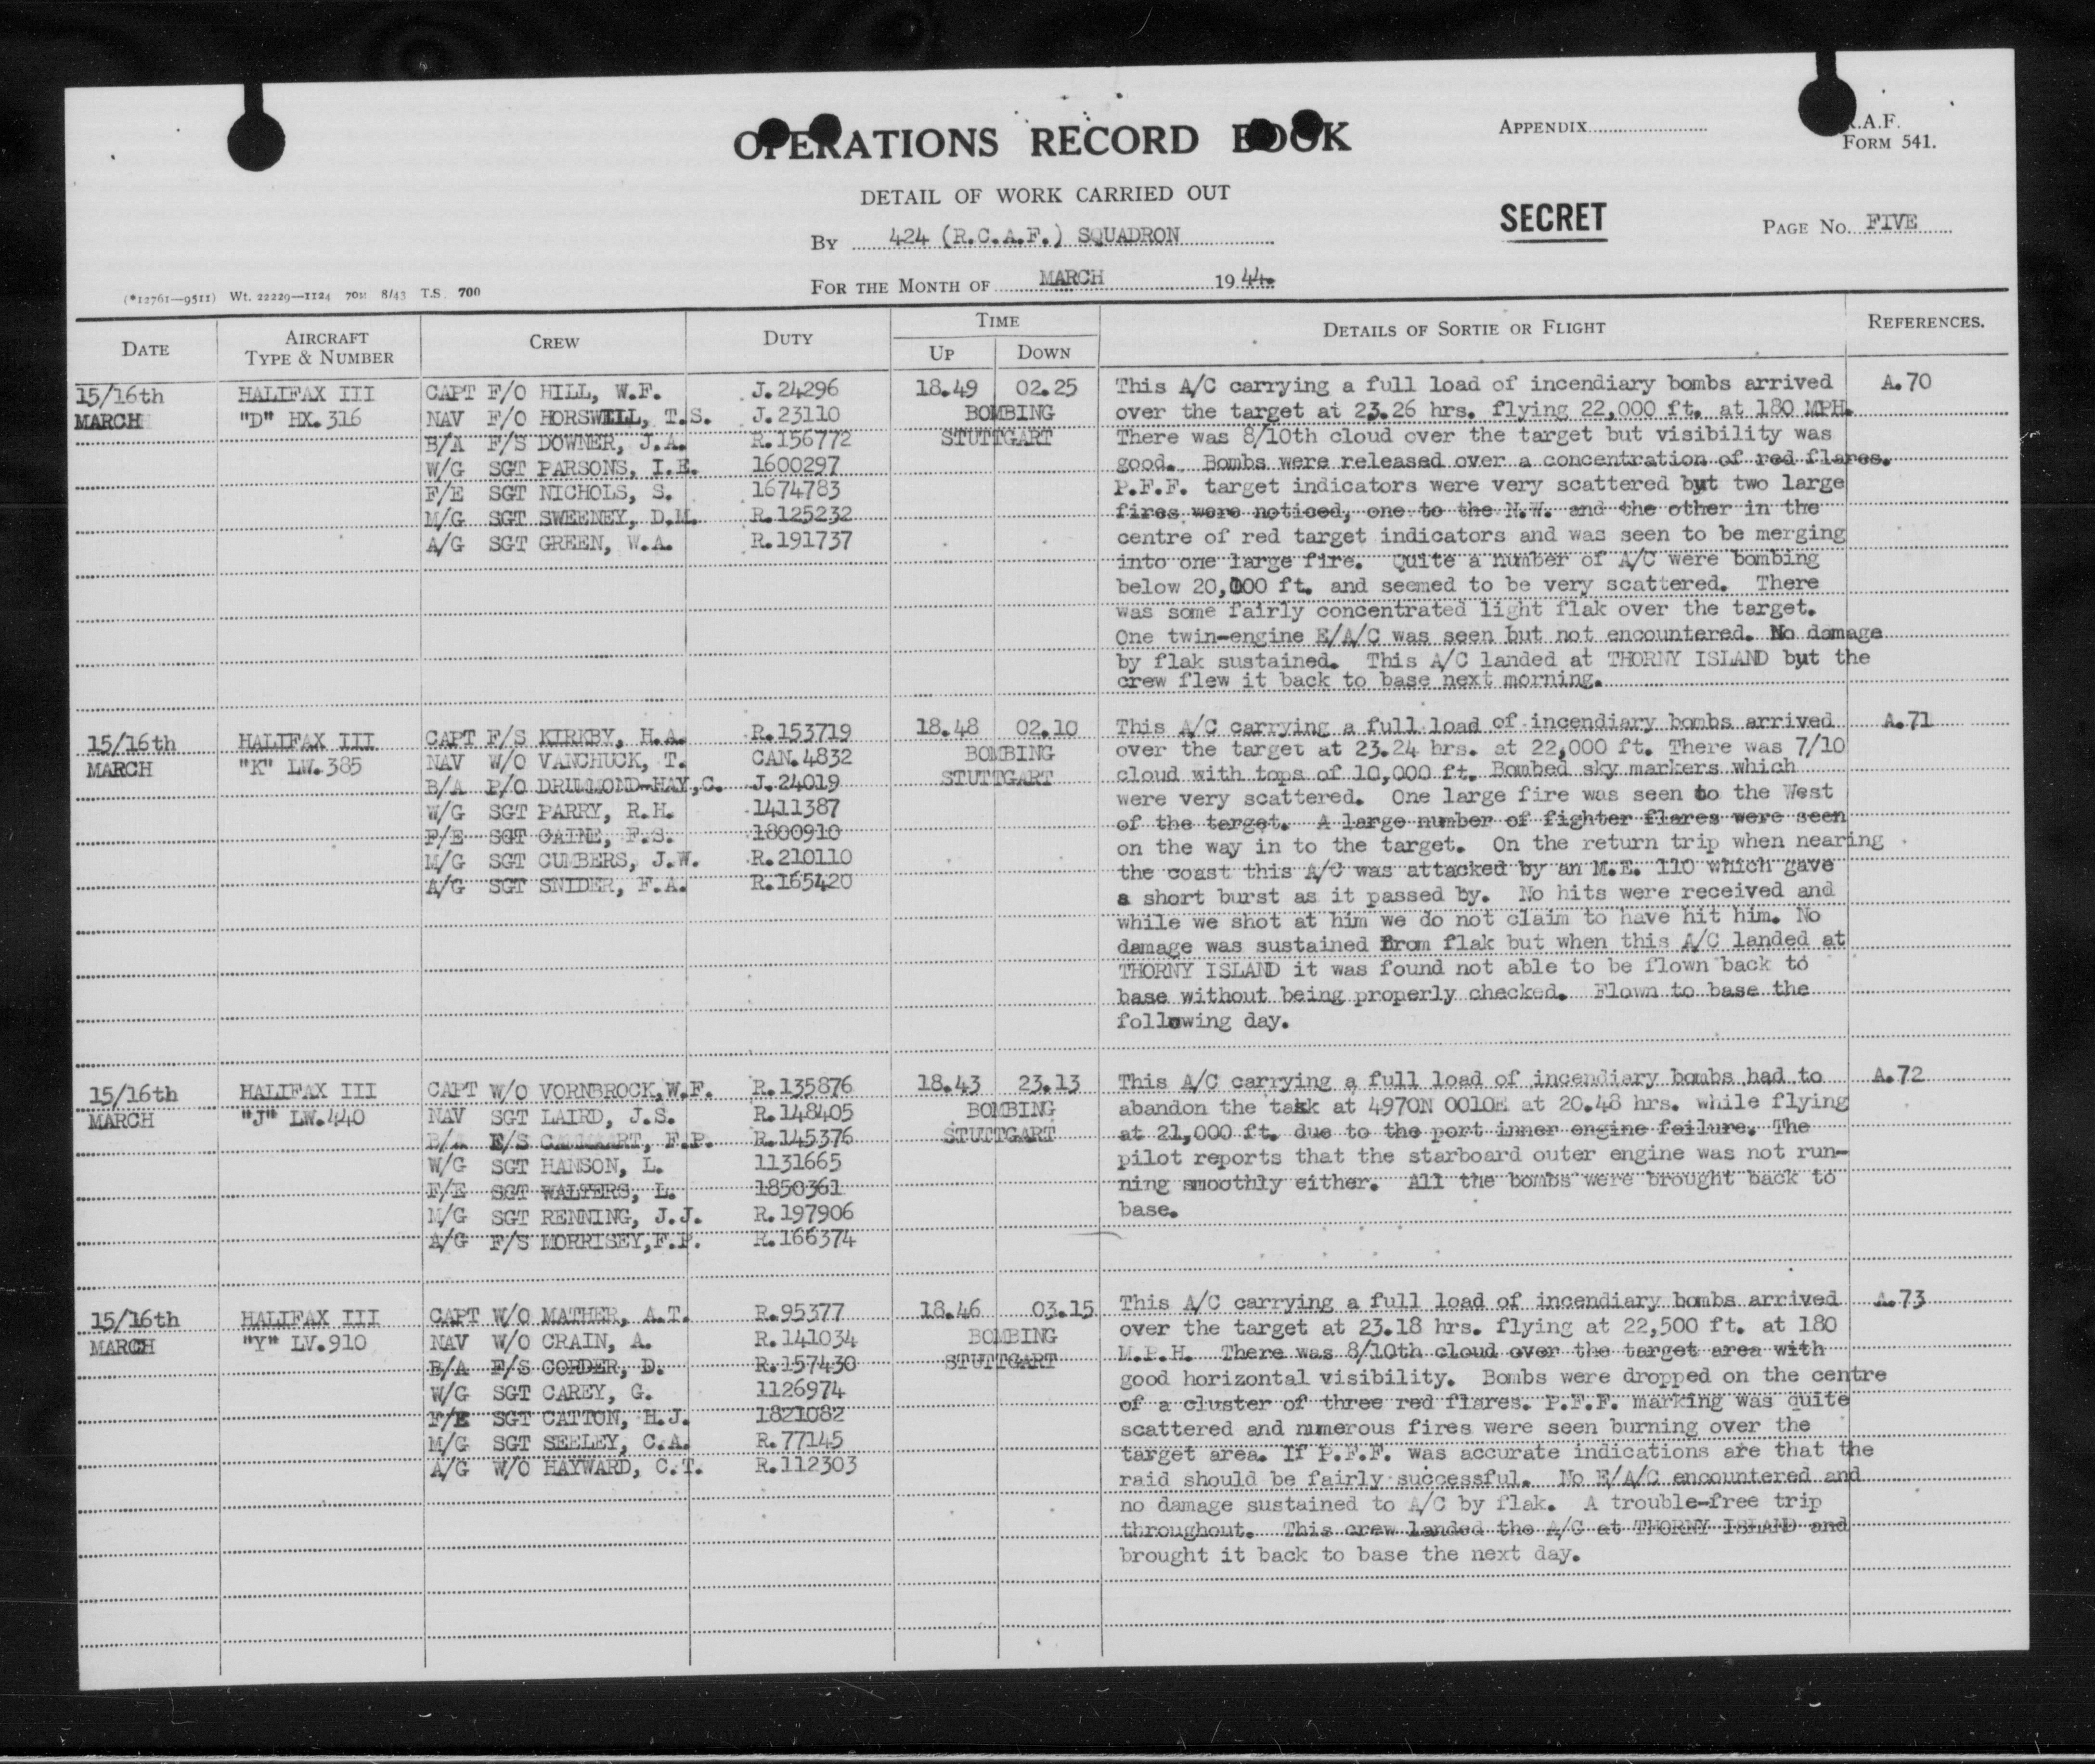 OPERATIONS RECORD BOOK
APPENDIX
R.A.F.
FORM 541.
DETAIL OF WORK CARRIED OUT
SECRET
BY 424 (R.C.A.F.) SQUADRON
PAGE NO. FIVE
FOR THE MONTH OF MARCH 1944.
(*12761—9511) Wt. 22229—1124 70M 8/43 T.S. 700
DATE
AIRCRAFT
TYPE & NUMBER
CREW
DUTY
TIME
UP
DOWN
DETAILS OF SORTIE OR FLIGHT
REFERENCES.
15/16th
MARCH
HALIFAX III
"D" HX.316
CAPT F/O HILL, W.F. J.24296
NAV F/O HORSWILL, T.S. J.23110
B/A F/S DOWNER, J.A. R.156772
W/G SGT PARSONS, I.E. 1600297
F/E SGT NICHOLS, S. 1674783
M/G SGT SWEENEY, D.M. R.125232
A/G SGT GREEN, W.A. R.191737
18.49 02.25
BOMBING
STUTTGART
This A/C carrying a full load of incendiary bombs arrived
over the target at 23.26 hrs. flying 22,000 ft. at 180 MPH.
There was 8/10th cloud over the target but visibility was
good. Bombs were released over a concentration of red flares.
P.F.F. target indicators were very scattered but two large
fires were noticed, one to the N.W. and the other in the
centre of red target indicators and was seen to be merging
into one large fire. Quite a number of A/C were bombing
below 20,000 ft. and seemed to be very scattered. There
was some fairly concentrated light flak over the target.
One twin-engine E/A/C was seen but not encountered. No damage
by flak sustained. This A/C landed at THORNY ISLAND but the
crew flew it back to base next morning.
A.70
15/16th
MARCH
HALIFAX III
"K" LW.385
CAPT F/S KIRKBY, H.A. R.153719
NAV W/O VANCHUCK, T. CAN.4832
B/A P/O DRUMMOND-HAY,C. J.24019
W/G SGT PARRY, R.H. 1411387
F/E SGT CAINE, F.S. 1800910
M/G SGT CUMBERS, J.W. R.210110
A/G SGT SNIDER, F.A. R.165420
18.48 02.10
BOMBING
STUTTGART
This A/C carrying a full load of incendiary bombs arrived
over the target at 23.24 hrs. at 22,000 ft. There was 7/10
cloud with tops of 10,000 ft. Bombed sky markers which
were very scattered. One large fire was seen to the West
of the target. A large number of fighter flares were seen
on the way in to the target. On the return trip when nearing
the coast this A/C was attacked by an M.E. 110 which gave
a short burst as it passed by. No hits were received and
while we shot at him we do not claim to have hit him. No
damage was sustained from flak but when this A/C landed at
THORNY ISLAND it was found not able to be flown back to
base without being properly checked. Flown to base the
following day.
A.71
15/16th
MARCH
HALIFAX III
"J" LW.440
CAPT W/O VORNBROCK,W.F. R.135876
NAV SGT LAIRD, J.S. R.148405
B/A F/S F.P. R.145376
W/G SGT HANSON, L. 1131665
F/E SGT WALTERS, L. 1850361
M/G SGT RENNING, J.J. R.197906
A/G F/S MORRISEY,F.P. R.166374
18.43 23.13
BOMBING
STUTTGART
This A/C carrying a full load of incendiary bombs had to
abandon the task at 4970N 0010E at 20.48 hrs. while flying
at 21,000 ft. due to the port inner engine failure. The
pilot reports that the starboard outer engine was not run-
ning smoothly either. All the bombs were brought back to
base.
A.72
15/16th
MARCH
HALIFAX III
"Y" LV.910
CAPT W/O MATHER, A.T. R.95377
NAV W/O CRAIN, A. R.141034
B/A F/S CORDER, D. R.157430
W/G SGT CAREY, G. 1126974
F/E SGT CATTON, H.J. 1821082
M/G SGT SEELEY, C.A. R.77145
A/G W/O HAYWARD, C.T. R.112303
18.46 03.15
BOMBING
STUTTGART
This A/C carrying a full load of incendiary bombs arrived
over the target at 23.18 hrs. flying at 22,500 ft. at 180
M.P.H. There was 8/10th cloud over the target area with
good horizontal visibility. Bombs were dropped on the centre
of a cluster of three red flares. P.F.F. marking was quite
scattered and numerous fires were seen burning over the
target area. If P.F.F. was accurate indications are that the
raid should be fairly successful. No E/A/C encountered and
no damage sustained to A/C by flak. A trouble-free trip
throughout. This crew landed the A/C at THORNY ISLAND and
brought it back to base the next day.
A.73